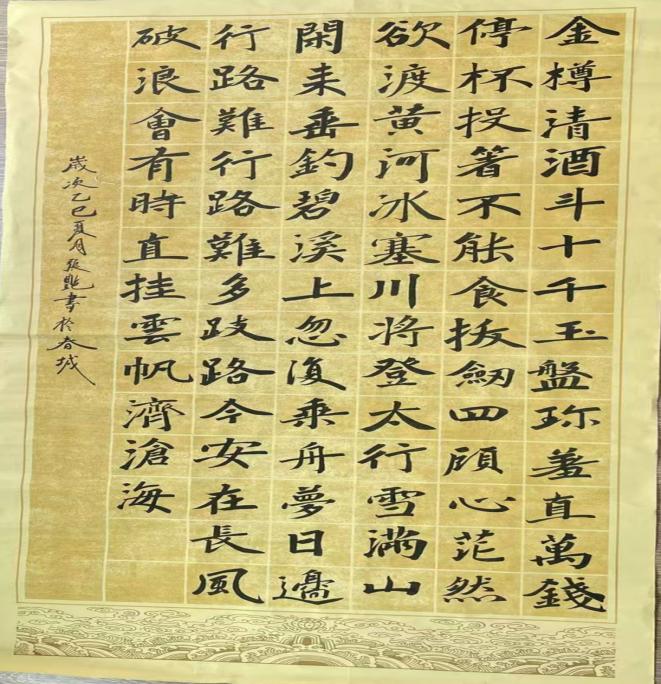 金樽清酒斗十千玉盤珎羞直萬錢
停杯投箸不能食拔劒四顧心茫然
欲渡黄河冰塞川將登太行雪滿山
閑来垂釣碧溪上忽復乘舟夢日邊
行路難行路難多歧路今安在長風
破浪會有時直挂雲帆濟滄海
歲次乙巳夏月張艷書於春城